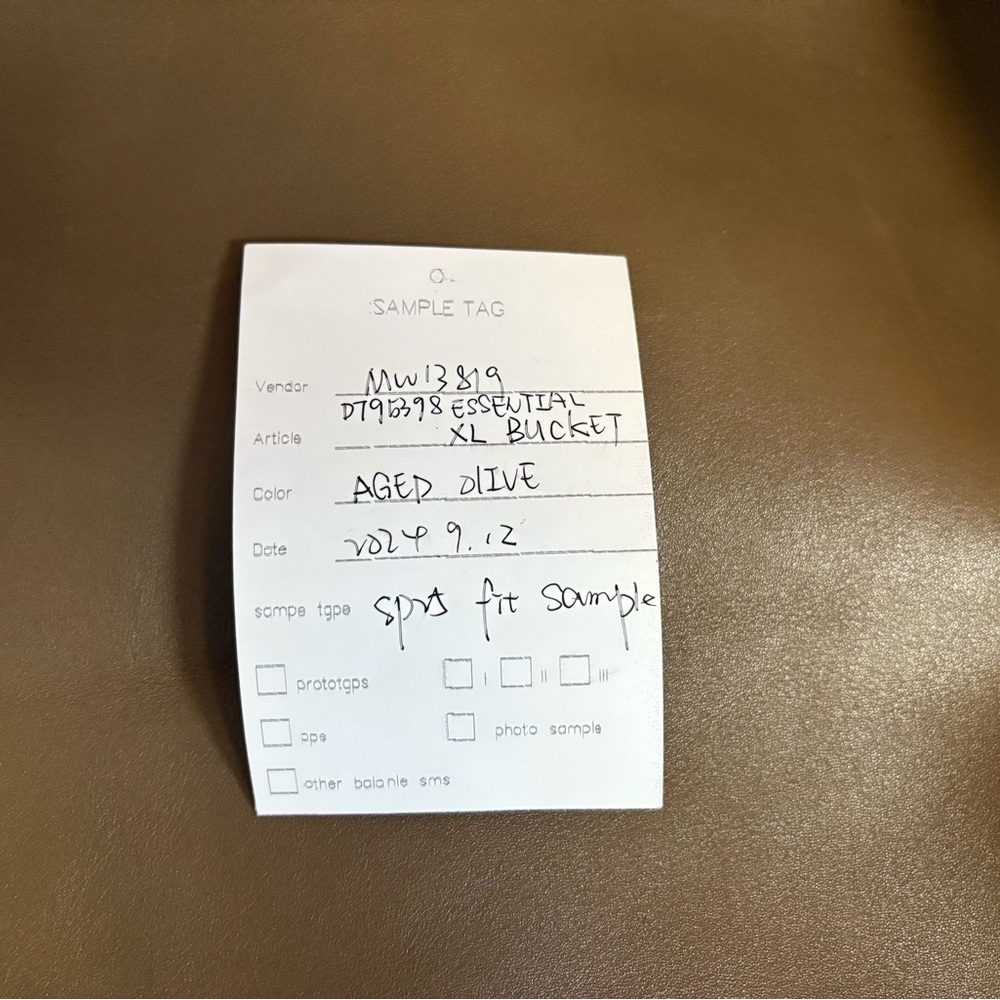 SAMPLE TAG
Vendor MW13819
D795398 ESSENTIAL
Article XL BUCKET
Color AGED OlIVE
Date 2024 9.12
sampe tgpe fit sample
prototgps I II III
pps photo sample
other balanle sms